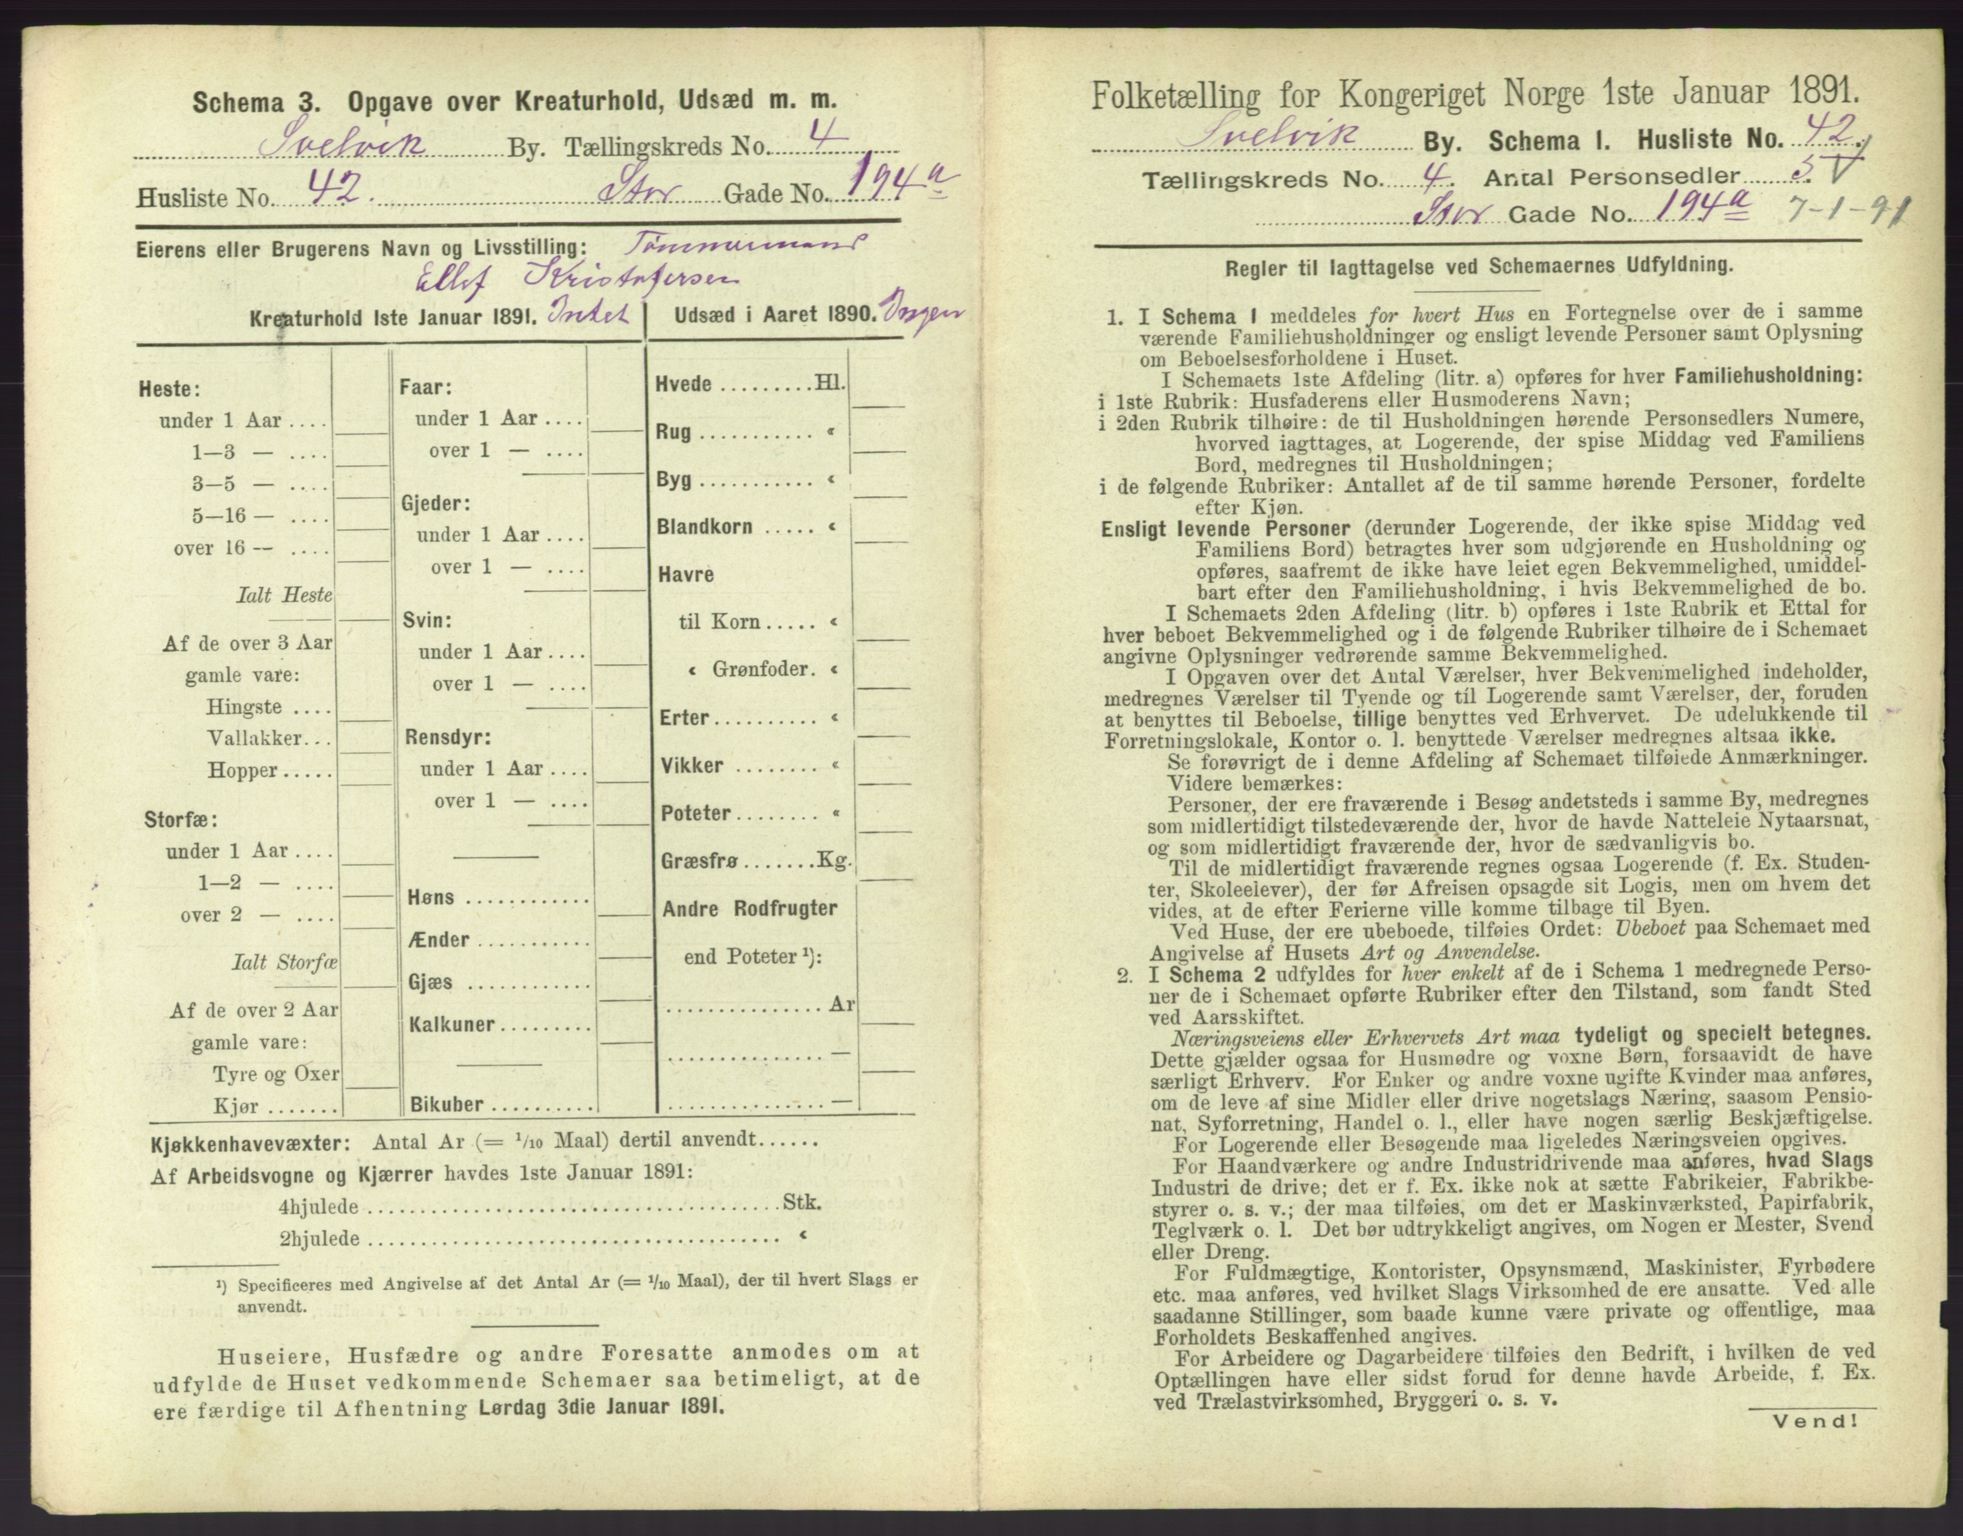 Schema 3. Opgave over Kreaturhold, Udsæd m. m.
Svelvik By. Tællingskreds No. 4
Husliste No. 42. Stor Gade No. 194a
Eierens eller Brugerens Navn og Livsstilling: Tømmermand
Ellef Kristofersen
Kreaturhold 1ste Januar 1891. Intet
Udsæd i Aaret 1890. Ingen
Heste:
under 1 Aar ....
1—3 — ....
3—5 — ....
5—16 — ....
over 16 — ....
Ialt Heste
Af de over 3 Aar
gamle vare:
Hingste ....
Vallakker...
Hopper.....
Storfæ:
under 1 Aar ....
1—2 — ....
over 2 — ....
Ialt Storfæ
Af de over 2 Aar
gamle vare:
Tyre og Oxer
Kjør .......
Faar:
under 1 Aar ....
over 1 — ....
Gjeder:
under 1 Aar ....
over 1 — ....
Svin:
under 1 Aar ....
over 1 — ....
Rensdyr:
under 1 Aar ....
over 1 — ....
Høns ............
Ænder ...........
Gjæs ............
Kalkuner.........
Bikuber ..........
Hvede .........Hl.
Rug ........... «
Byg ........... «
Blandkorn ..... «
Havre
til Korn ..... «
« Grønfoder. «
Erter.......... «
Vikker ........ «
Poteter........ «
Græsfrø.......Kg.
Andre Rodfrugter
end Poteter ¹):
............... Ar
............... —
............... —
Kjøkkenhavevæxter: Antal Ar (= 1/10 Maal) dertil anvendt......
Af Arbeidsvogne og Kjærrer havdes 1ste Januar 1891:
4hjulede ........................................Stk.
2hjulede ........................................ «
¹) Specificeres med Angivelse af det Antal Ar (= 1/10 Maal), der til hvert Slags er
anvendt.
Huseiere, Husfædre og andre Foresatte anmodes om at
udfylde de Huset vedkommende Schemaer saa betimeligt, at de
ere færdige til Afhentning Lørdag 3die Januar 1891.
Folketælling for Kongeriget Norge 1ste Januar 1891.
Svelvik By. Schema I. Husliste No. 42.
Tællingskreds No. 4. Antal Personsedler 5. V
Stor Gade No. 194a 7-1-91
Regler til Iagttagelse ved Schemaernes Udfyldning.
1. I Schema 1 meddeles for hvert Hus en Fortegnelse over de i samme
værende Familiehusholdninger og ensligt levende Personer samt Oplysning
om Beboelsesforholdene i Huset.
I Schemaets 1ste Afdeling (litr. a) opføres for hver Familiehusholdning:
i 1ste Rubrik: Husfaderens eller Husmoderens Navn;
i 2den Rubrik tilhøire: de til Husholdningen hørende Personsedlers Numere,
hvorved iagttages, at Logerende, der spise Middag ved Familiens
Bord, medregnes til Husholdningen;
i de følgende Rubriker: Antallet af de til samme hørende Personer, fordelte
efter Kjøn.
Ensligt levende Personer (derunder Logerende, der ikke spise Middag ved
Familiens Bord) betragtes hver som udgjørende en Husholdning og
opføres, saafremt de ikke have leiet egen Bekvemmelighed, umiddel-
bart efter den Familiehusholdning, i hvis Bekvemmelighed de bo.
I Schemaets 2den Afdeling (litr. b) opføres i 1ste Rubrik et Ettal for
hver beboet Bekvemmelighed og i de følgende Rubriker tilhøire de i Schemaet
angivne Oplysninger vedrørende samme Bekvemmelighed.
I Opgaven over det Antal Værelser, hver Bekvemmelighed indeholder,
medregnes Værelser til Tyende og til Logerende samt Værelser, der, foruden
at benyttes til Beboelse, tillige benyttes ved Erhvervet. De udelukkende til
Forretningslokale, Kontor o. l. benyttede Værelser medregnes altsaa ikke.
Se forøvrigt de i denne Afdeling af Schemaet tilføiede Anmærkninger.
Videre bemærkes:
Personer, der ere fraværende i Besøg andetsteds i samme By, medregnes
som midlertidigt tilstedeværende der, hvor de havde Natteleie Nytaarsnat,
og som midlertidigt fraværende der, hvor de sædvanligvis bo.
Til de midlertidigt fraværende regnes ogsaa Logerende (f. Ex. Studen-
ter, Skoleelever), der før Afreisen opsagde sit Logis, men om hvem det
vides, at de efter Ferierne ville komme tilbage til Byen.
Ved Huse, der ere ubeboede, tilføies Ordet: Ubeboet paa Schemaet med
Angivelse af Husets Art og Anvendelse.
2. I Schema 2 udfyldes for hver enkelt af de i Schema 1 medregnede Perso-
ner de i Schemaet opførte Rubriker efter den Tilstand, som fandt Sted
ved Aarsskiftet.
Næringsveiens eller Erhvervets Art maa tydeligt og specielt betegnes.
Dette gjælder ogsaa for Husmødre og voxne Børn, forsaavidt de have
særligt Erhverv. For Enker og andre voxne ugifte Kvinder maa anføres,
om de leve af sine Midler eller drive nogetslags Næring, saasom Pensio-
nat, Syforretning, Handel o. l., eller have nogen særlig Beskjæftigelse.
For Logerende eller Besøgende maa ligeledes Næringsveien opgives.
For Haandværkere og andre Industridrivende maa anføres, hvad Slags
Industri de drive; det er f. Ex. ikke nok at sætte Fabrikeier, Fabrikbe-
styrer o. s. v.; der maa tilføies, om det er Maskinværksted, Papirfabrik,
Teglværk o. l. Det bør udtrykkeligt angives, om Nogen er Mester, Svend
eller Dreng.
For Fuldmægtige, Kontorister, Opsynsmænd, Maskinister, Fyrbødere
etc. maa anføres, ved hvilket Slags Virksomhed de ere ansatte. Ved alle
saadanne Stillinger, som baade kunne være private og offentlige, maa
Forholdets Beskaffenhed angives.
For Arbeidere og Dagarbeidere tilføies den Bedrift, i hvilken de ved
Optællingen have eller sidst forud for denne havde Arbeide, f. Ex.
ved Trælastvirksomhed, Bryggeri o. s. v.
Vend!